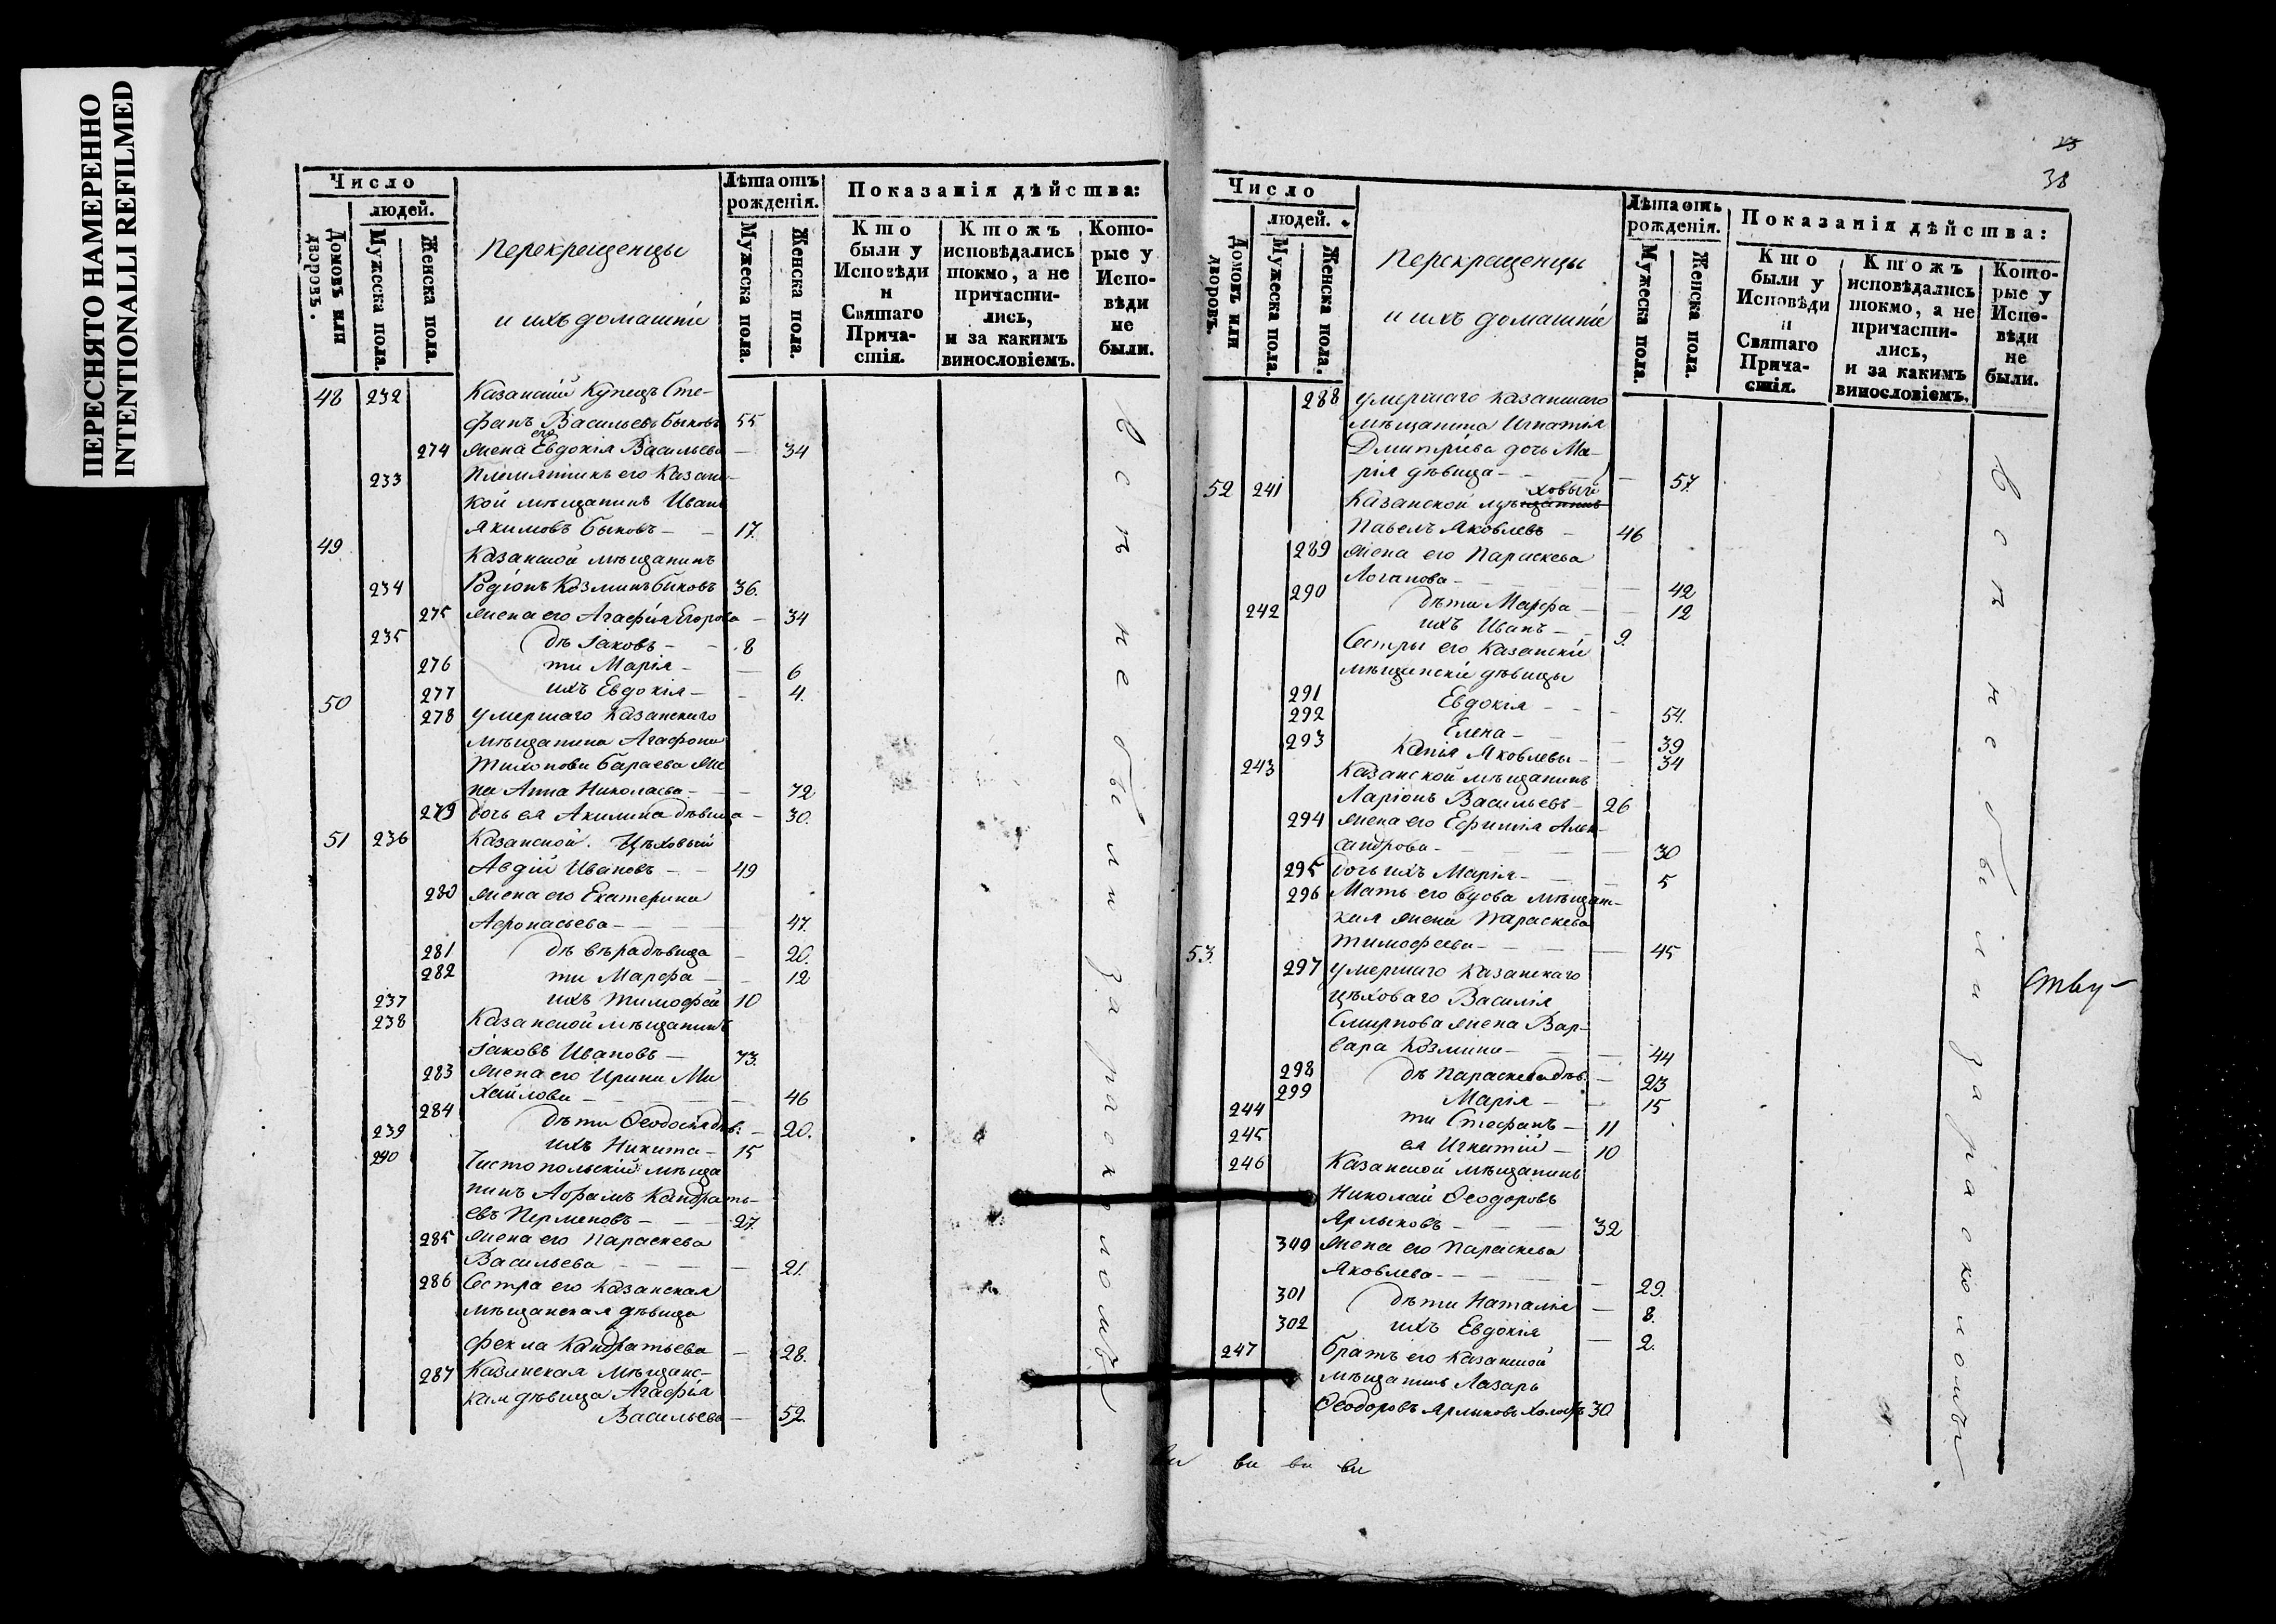 ПЕРЕСНЯТО НАМЕРЕННО
INTENTIONALLI REFILMED
Число
людей.
Домовъ или дворовъ.
Мужеска пола.
Женска пола.
Перекрещенцы
и ихъ домашніе
Лѣта отъ рожденія.
Мужеска пола.
Женска пола.
Показанія дѣйства:
Кто были у Исповѣди и Святаго Причастія.
Ктожъ исповѣдались токмо, а не причастились, и за какимъ винословіемъ.
Которые у Исповѣди не были.
48 232 Казанскій Купецъ Сте-
фанъ Васильевъ Быковъ 55
274 жена его Евдокія Васильева — 34
233 Племянникъ его Казанс-
кой мѣщанинъ Иванъ
Якимовъ Быковъ — 17.
49 Казанской мѣщанинъ
234 Родіонъ Козминъ Быковъ 36.
275 жена его Агафія Егорова — 34
235 дѣ Іаковъ — 8
276 ти Марія — 6
277 ихъ Евдокія — 4.
50 278 умершаго Казанскаго
мѣщанина Агафона
Тихонова Бараева же
на Анна Николаева — 72
279 дочь ея Акилина дѣвица — 30.
51 236 Казанской Цѣховый
Авдій Ивановъ — 49
280 жена его Екатерина
Афонасьева — 47.
281 дѣ Вѣра дѣвица — 20.
282 ти Марфа — 12
237 ихъ Тимофей 10
238 Казанской мѣщанинъ
Іаковъ Ивановъ — 73.
283 жена его Ирина Ми
хайлова — 46
284 дѣти Ѳеодосія дѣв: — 20.
239 ихъ Никита — 15
240 Чистопольскій мѣща
нинъ Абрамъ Кандрать-
евъ Перменовъ — 27.
285 жена его Параскева
Васильева — 21.
286 Сестра его Казанская
мѣщанская дѣвица
Фекла Кандратьева — 28.
287 Казанская мѣщанс-
кая дѣвица Агафія
Васильева — 52.
Вси не были за расколомъ
23
38
Число
людей.
Домовъ или дворовъ.
Мужеска пола.
Женска пола.
Перекращенцы
и ихъ домашніе
Лѣта отъ рожденія.
Мужеска пола.
Женска пола.
Показанія дѣйства:
Кто были у Исповѣди и Святаго Причастія.
Ктожъ исповѣдались токмо, а не причастились, и за какимъ винословіемъ.
Которые у Исповѣди не были.
288 умершаго казанскаго
мѣщанина Игнатія
Дмитріева дочь Ма-
рія дѣвица — 57.
ховый
52 241 Казанской мѣщанинъ
Павелъ Яковлевъ — 46
289 жена его Параскева
Логанова — 42
290 дѣти Марфа — 12
242 ихъ Иванъ — 9.
Сестры его Казанскіе
мѣщанскіе дѣвицы
291 Евдокія — 54.
292 Елена — 39
293 Капія Яковлевы — 34
243 Казанской мѣщанинъ
Ларіонъ Васильевъ — 26
294 жена его Ефимія Алек-
сандрова — 30
295 дочь ихъ Марія — 5
296 Мать его вдова мѣщанс-
кая жена Параскева
Тимофеева — 45
53. 297 умершаго Казанскаго
цѣховаго Василія
Смирнова жена Вар-
вара Козмина — 44
298 дѣ Параскева дѣв. — 23
299 Марія — 15
244 ти Стефанъ — 11
245 ея Игнатій — 10
246 Казанской мѣщанинъ
Николай Ѳеодоровъ
Ярлыковъ — 32
300 жена его Параскева
Яковлева — 29.
301 дѣти Наталія — 8.
302 ихъ Евдокія — 2.
247 братъ его Казанской
мѣщанинъ Лазарь
Ѳеодоровъ Ярлыковъ холостъ 30
Вси не были за расколомъ
ству-
ви ви ви